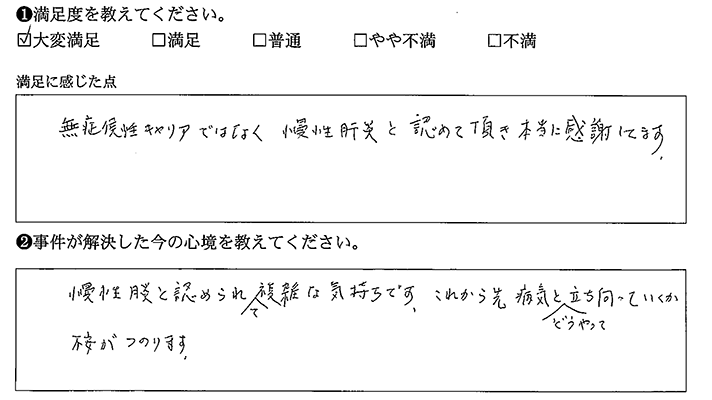 ❶満足度を教えてください。
☑大変満足 □満足 □普通 □やや不満 □不満
満足に感じた点
無症候性キャリアではなく 慢性肝炎と 認めて頂き本当に感謝してます。
❷事件が解決した今の心境を教えてください。
慢性肝炎と認められて複雑な気持ちです。これから先 病気とどうやって立ち向っていくか
不安がつのります。